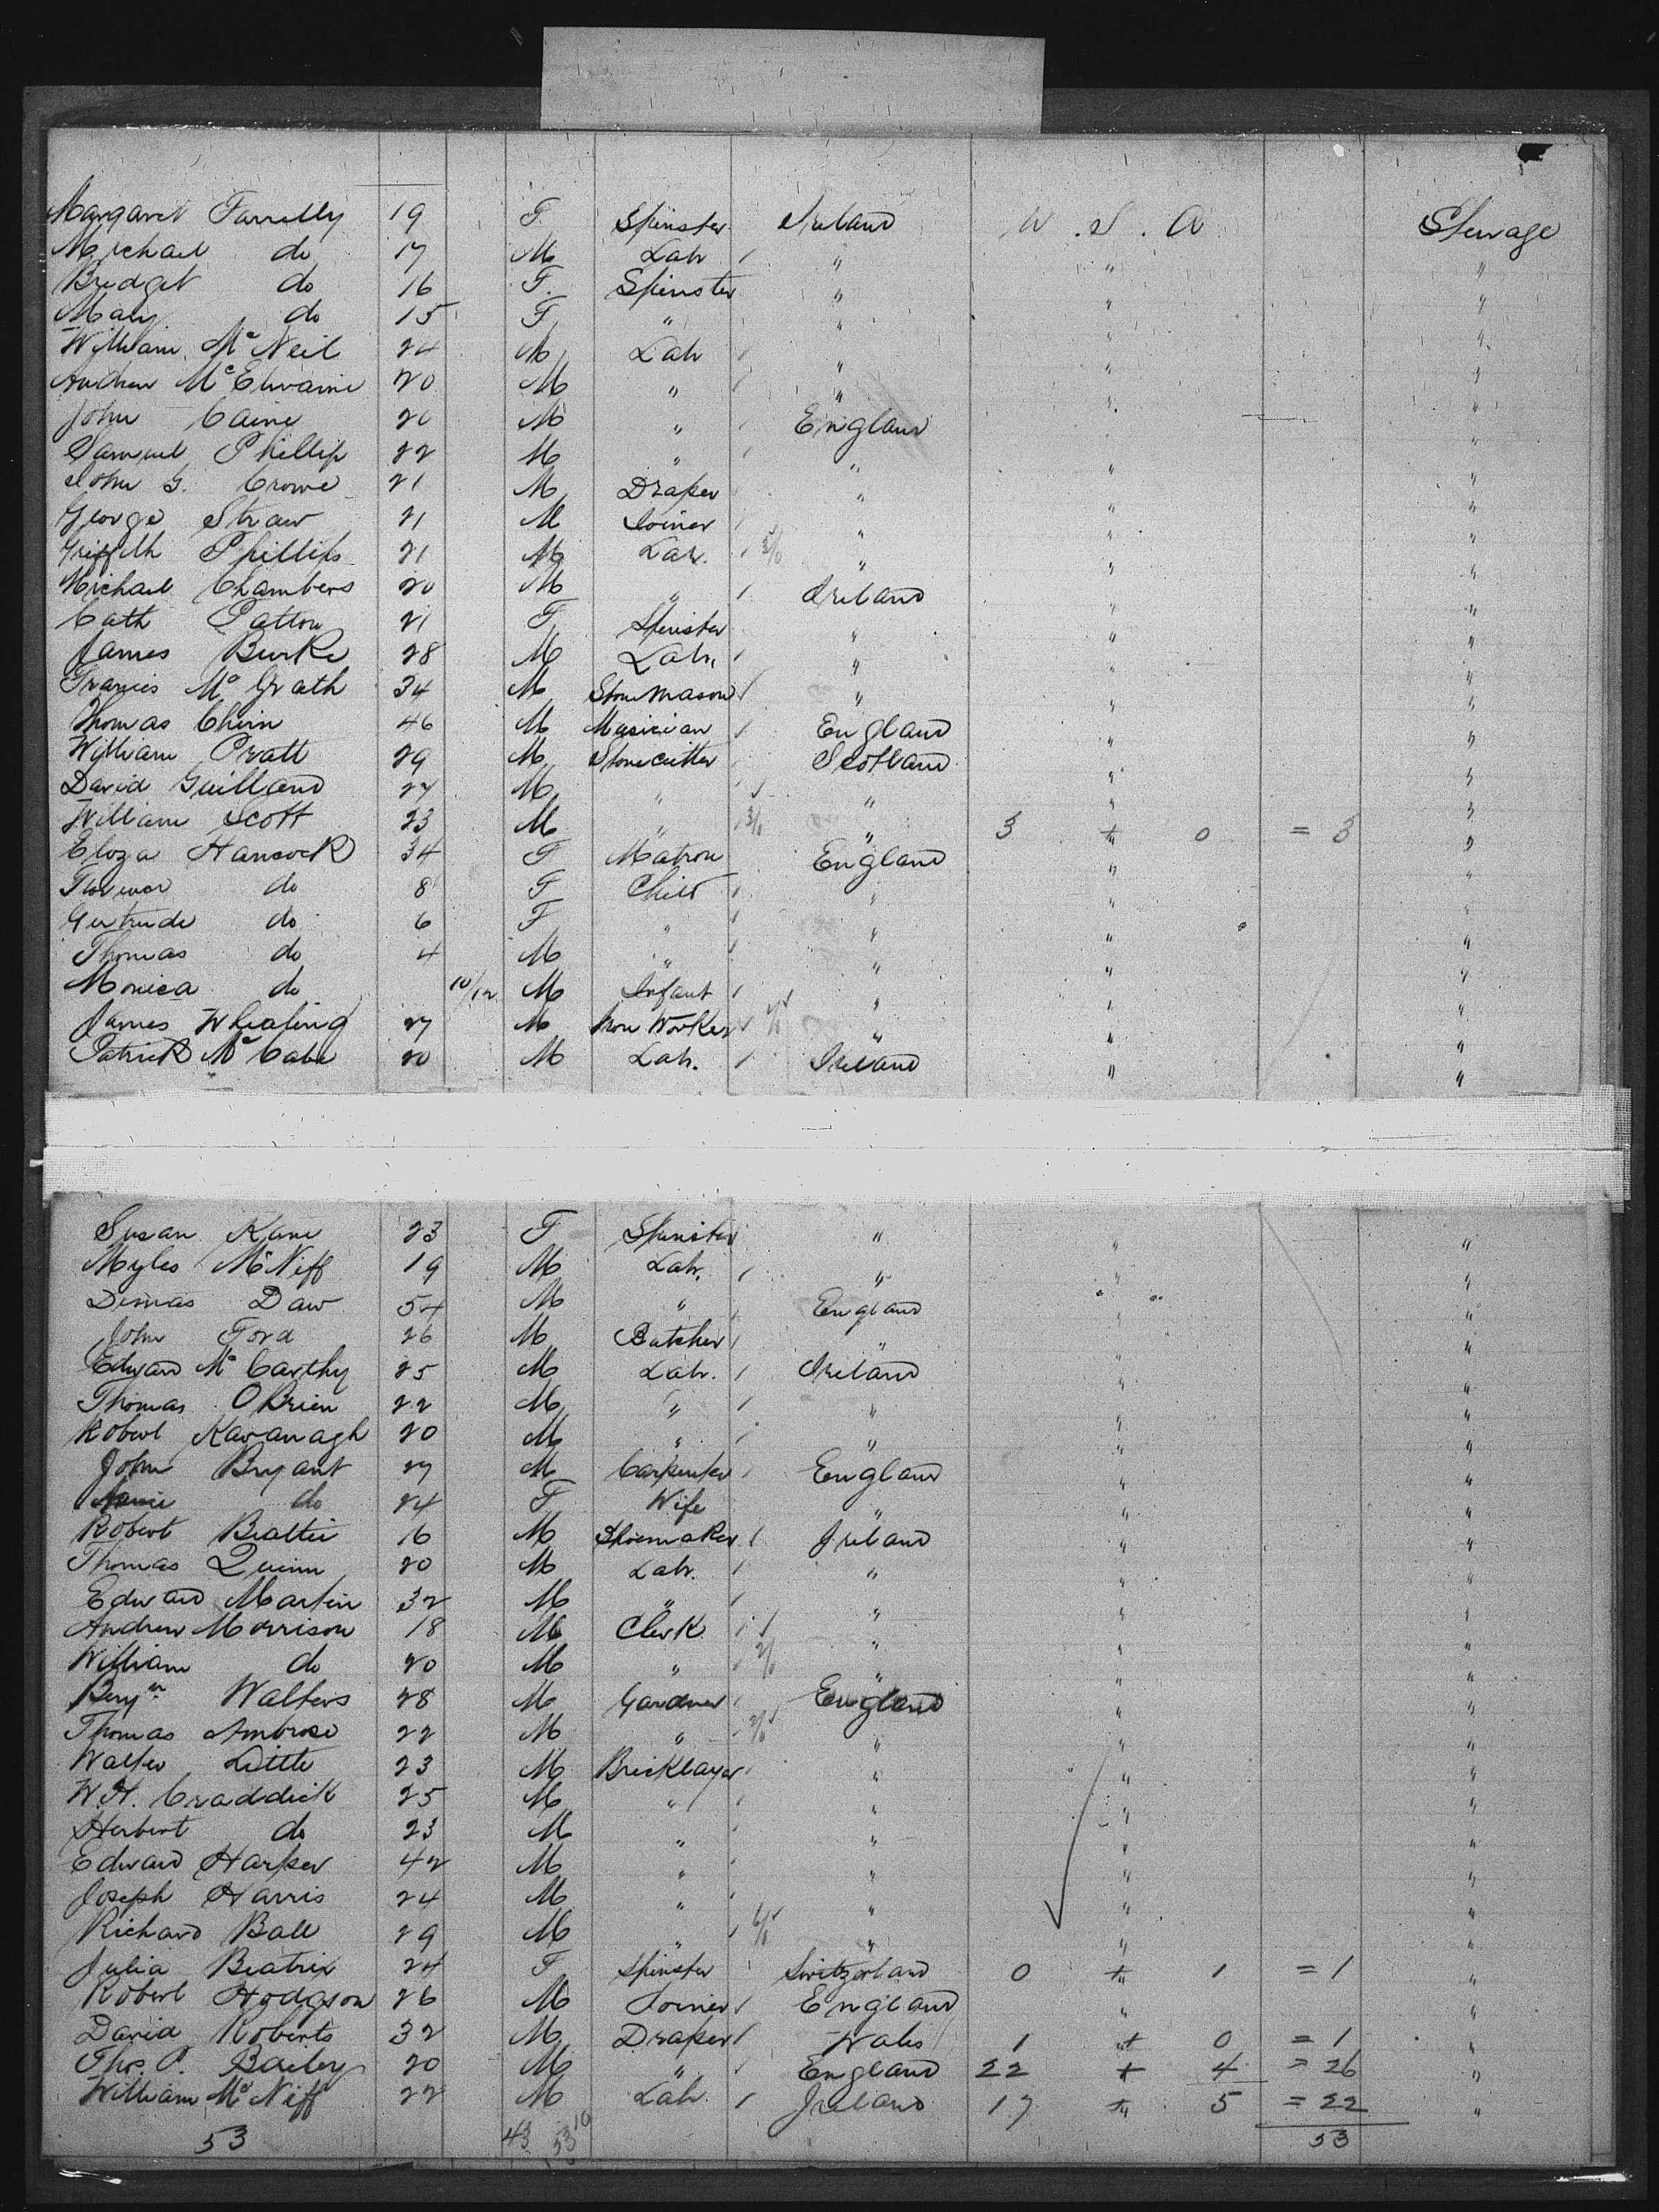 Margaret Farrelly 19 F. Spinster Ireland U . S . A Steerage
Michael do 17 M Labr " " "
Bridget do 16 F. Spinster " " "
Mary do 15 F " " " "
William Mc Neil 24 M Labr " " "
Andrew Mc Elwaine 20 M " " " "
John Caine 20 M " England " "
Samuel Phillip 22 M " " " "
John G. Crowe 21 M Draper " " "
George Straw 21 M Joiner " " "
Griffith Phillips 21 M Lab. " " "
Michael Chambers 20 M " Ireland " "
Cath Patton 21 F Spinster " " "
James Burke 28 M Labr. " " "
Francis Mc Grath 34 M Stone Mason " " "
Thomas Chinn 46 M Musician England " "
William Pratt 29 M Stonecutter Scotland " "
David 27 M " " " "
William Scott 23 M " " 3 + 0 = 3 "
Eliza Hancock 34 F Matron England " "
do 8 F Child " " "
Gertrude do 6 F " " " "
Thomas do 4 M " " " "
Monica do 10/12 M Infant " " "
James 27 M Iron Worker " " "
Patrick Mc Cabe 20 M Labr. Ireland " "
Susan Kane 23 F Spinster " " "
Myles McNiff 19 M Labr. " " "
Dimas Daw 54 M " England " "
John Ford 26 M Butcher " " "
Edward Mc Carthy 25 M Labr. Ireland " "
Thomas OBrien 22 M " " " "
Robert Kavanagh 20 M " " " "
John Bryant 27 M Carpenter England " "
do 24 F Wife " " "
Robert Beattie 16 M Shoemaker Ireland " "
Thomas Quinn 20 M Labr. " " "
Edward Martin 32 M " " " "
Andrew Morrison 18 M Clerk " " "
William do 20 M " " " "
Benjn Walters 28 M Gardner England " "
Thomas Ambrose 22 M " " " "
Walter Little 23 M Bricklayer " " "
W.H. Craddick 25 M " " " "
Herbert do 23 M " " " "
Edward Harper 42 M " " " "
Joseph Harris 24 M " " " "
Richard Ball 29 M " " " "
Julia Beatrix 24 F Spinster Switzerland 0 + 1 = 1 "
Robert Hodgson 26 M Joiner England " "
David Roberts 32 M Draper Wales 1 + 0 = 1 "
Thos. P. Bailey 20 M " England 22 + 4 = 26 "
William Mc Niff 22 M Labr Ireland 17 + 5 = 22 "
53 43 53 10 53